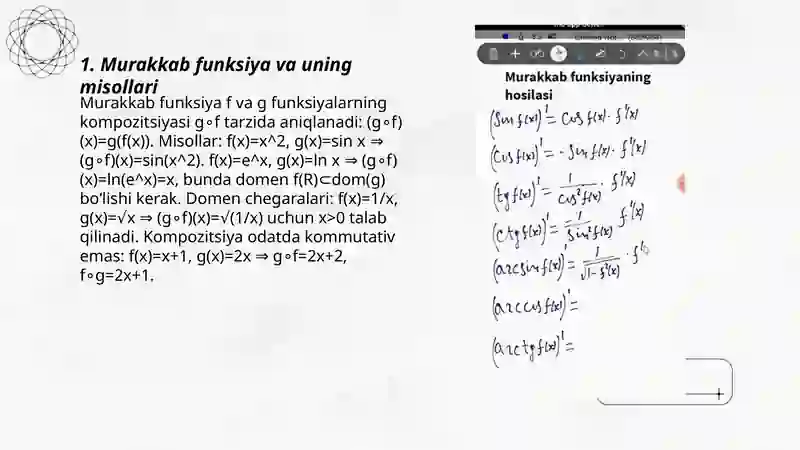 1. Murakkab funksiya va uning
misollari
Murakkab funksiya f va g funksiyalarning
kompozitsiyasi g∘f tarzida aniqlanadi: (g∘f)
(x)=g(f(x)). Misollar: f(x)=x^2, g(x)=sin x ⇒
(g∘f)(x)=sin(x^2). f(x)=e^x, g(x)=ln x ⇒ (g∘f)
(x)=ln(e^x)=x, bunda domen f(R)⊂dom(g)
bo‘lishi kerak. Domen chegaralari: f(x)=1/x,
g(x)=√x ⇒ (g∘f)(x)=√(1/x) uchun x>0 talab
qilinadi. Kompozitsiya odatda kommutativ
emas: f(x)=x+1, g(x)=2x ⇒ g∘f=2x+2,
f∘g=2x+1.
Murakkab funksiyaning
hosilasi
(sin f(x))' = cos f(x) · f'(x)
(cos f(x))' = - sin f(x) · f'(x)
(tg f(x))' = 1/cos² f(x) · f'(x)
(ctg f(x))' = -1/sin² f(x) f'(x)
(arcsin f(x))' = 1/√1-f²(x) · f'
(arccos f(x))' =
(arctg f(x))' =